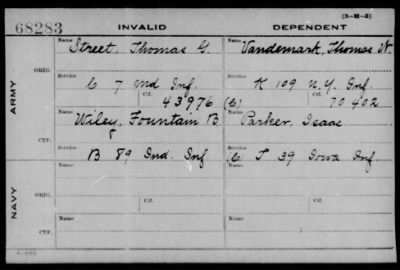 (3-M-3)
68283 INVALID DEPENDENT
Name Name
Street, Thomas G. Vandemark, Thomas W.
ORIG.
Service Service
C 7 Ind Inf K 109 N.Y. Inf.
Ctf. Ctf.
43976 (C) 70402
ARMY
Name Name
Wiley, Fountain B. Parker, Isaac
Service Service
B 89 Ind. Inf (C) I 39 Iowa Inf.
Name Name
NAVY
ORIG.
Ctf. Ctf.
Name Name